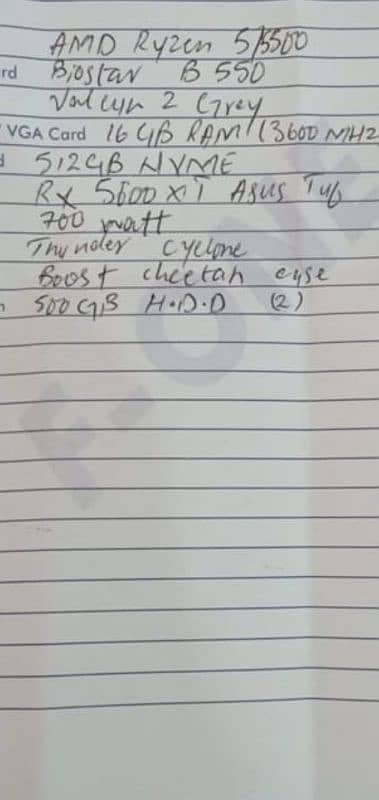 AMD Ryzen 5/5500
rd Biostar B 550
Valcyn 2 Grey
VGA Card 16 GB RAM (3600 MHZ
d 512GB NVME
RX 5600 XT Asus Tuf
700 watt
Thunder Cyclone
Boost cheetah case
n 500 GB H.D.D (2)
F-ONE